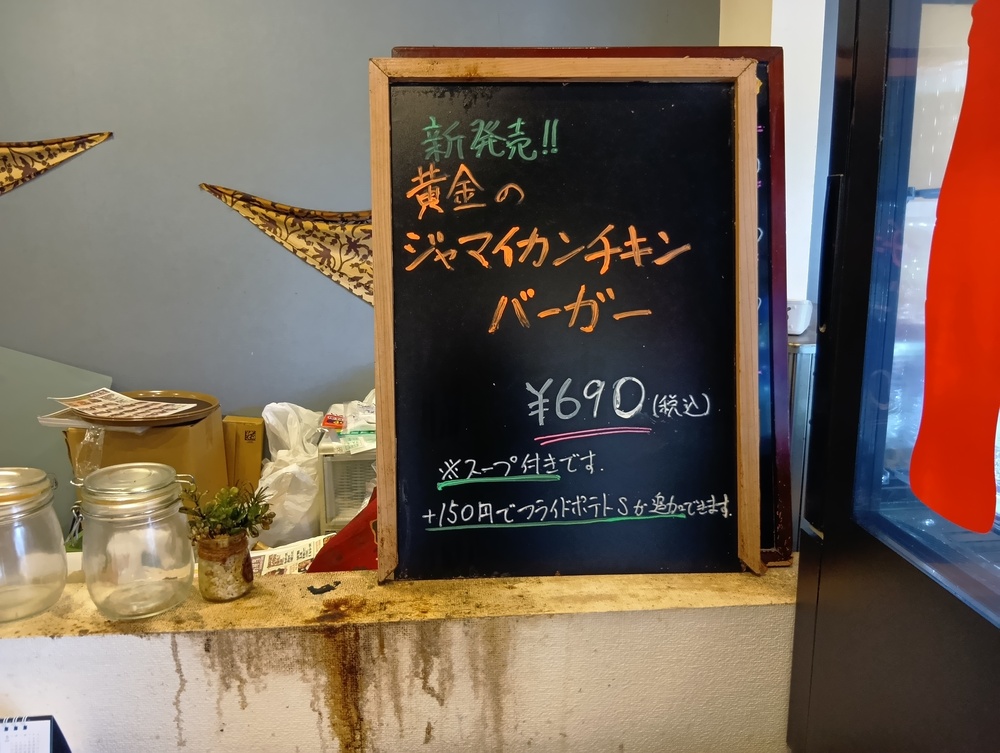 新発売!!
黄金の
ジャマイカンチキン
バーガー
¥690(税込)
※スープ付きです.
+150円でフライドポテトSが追加できます.